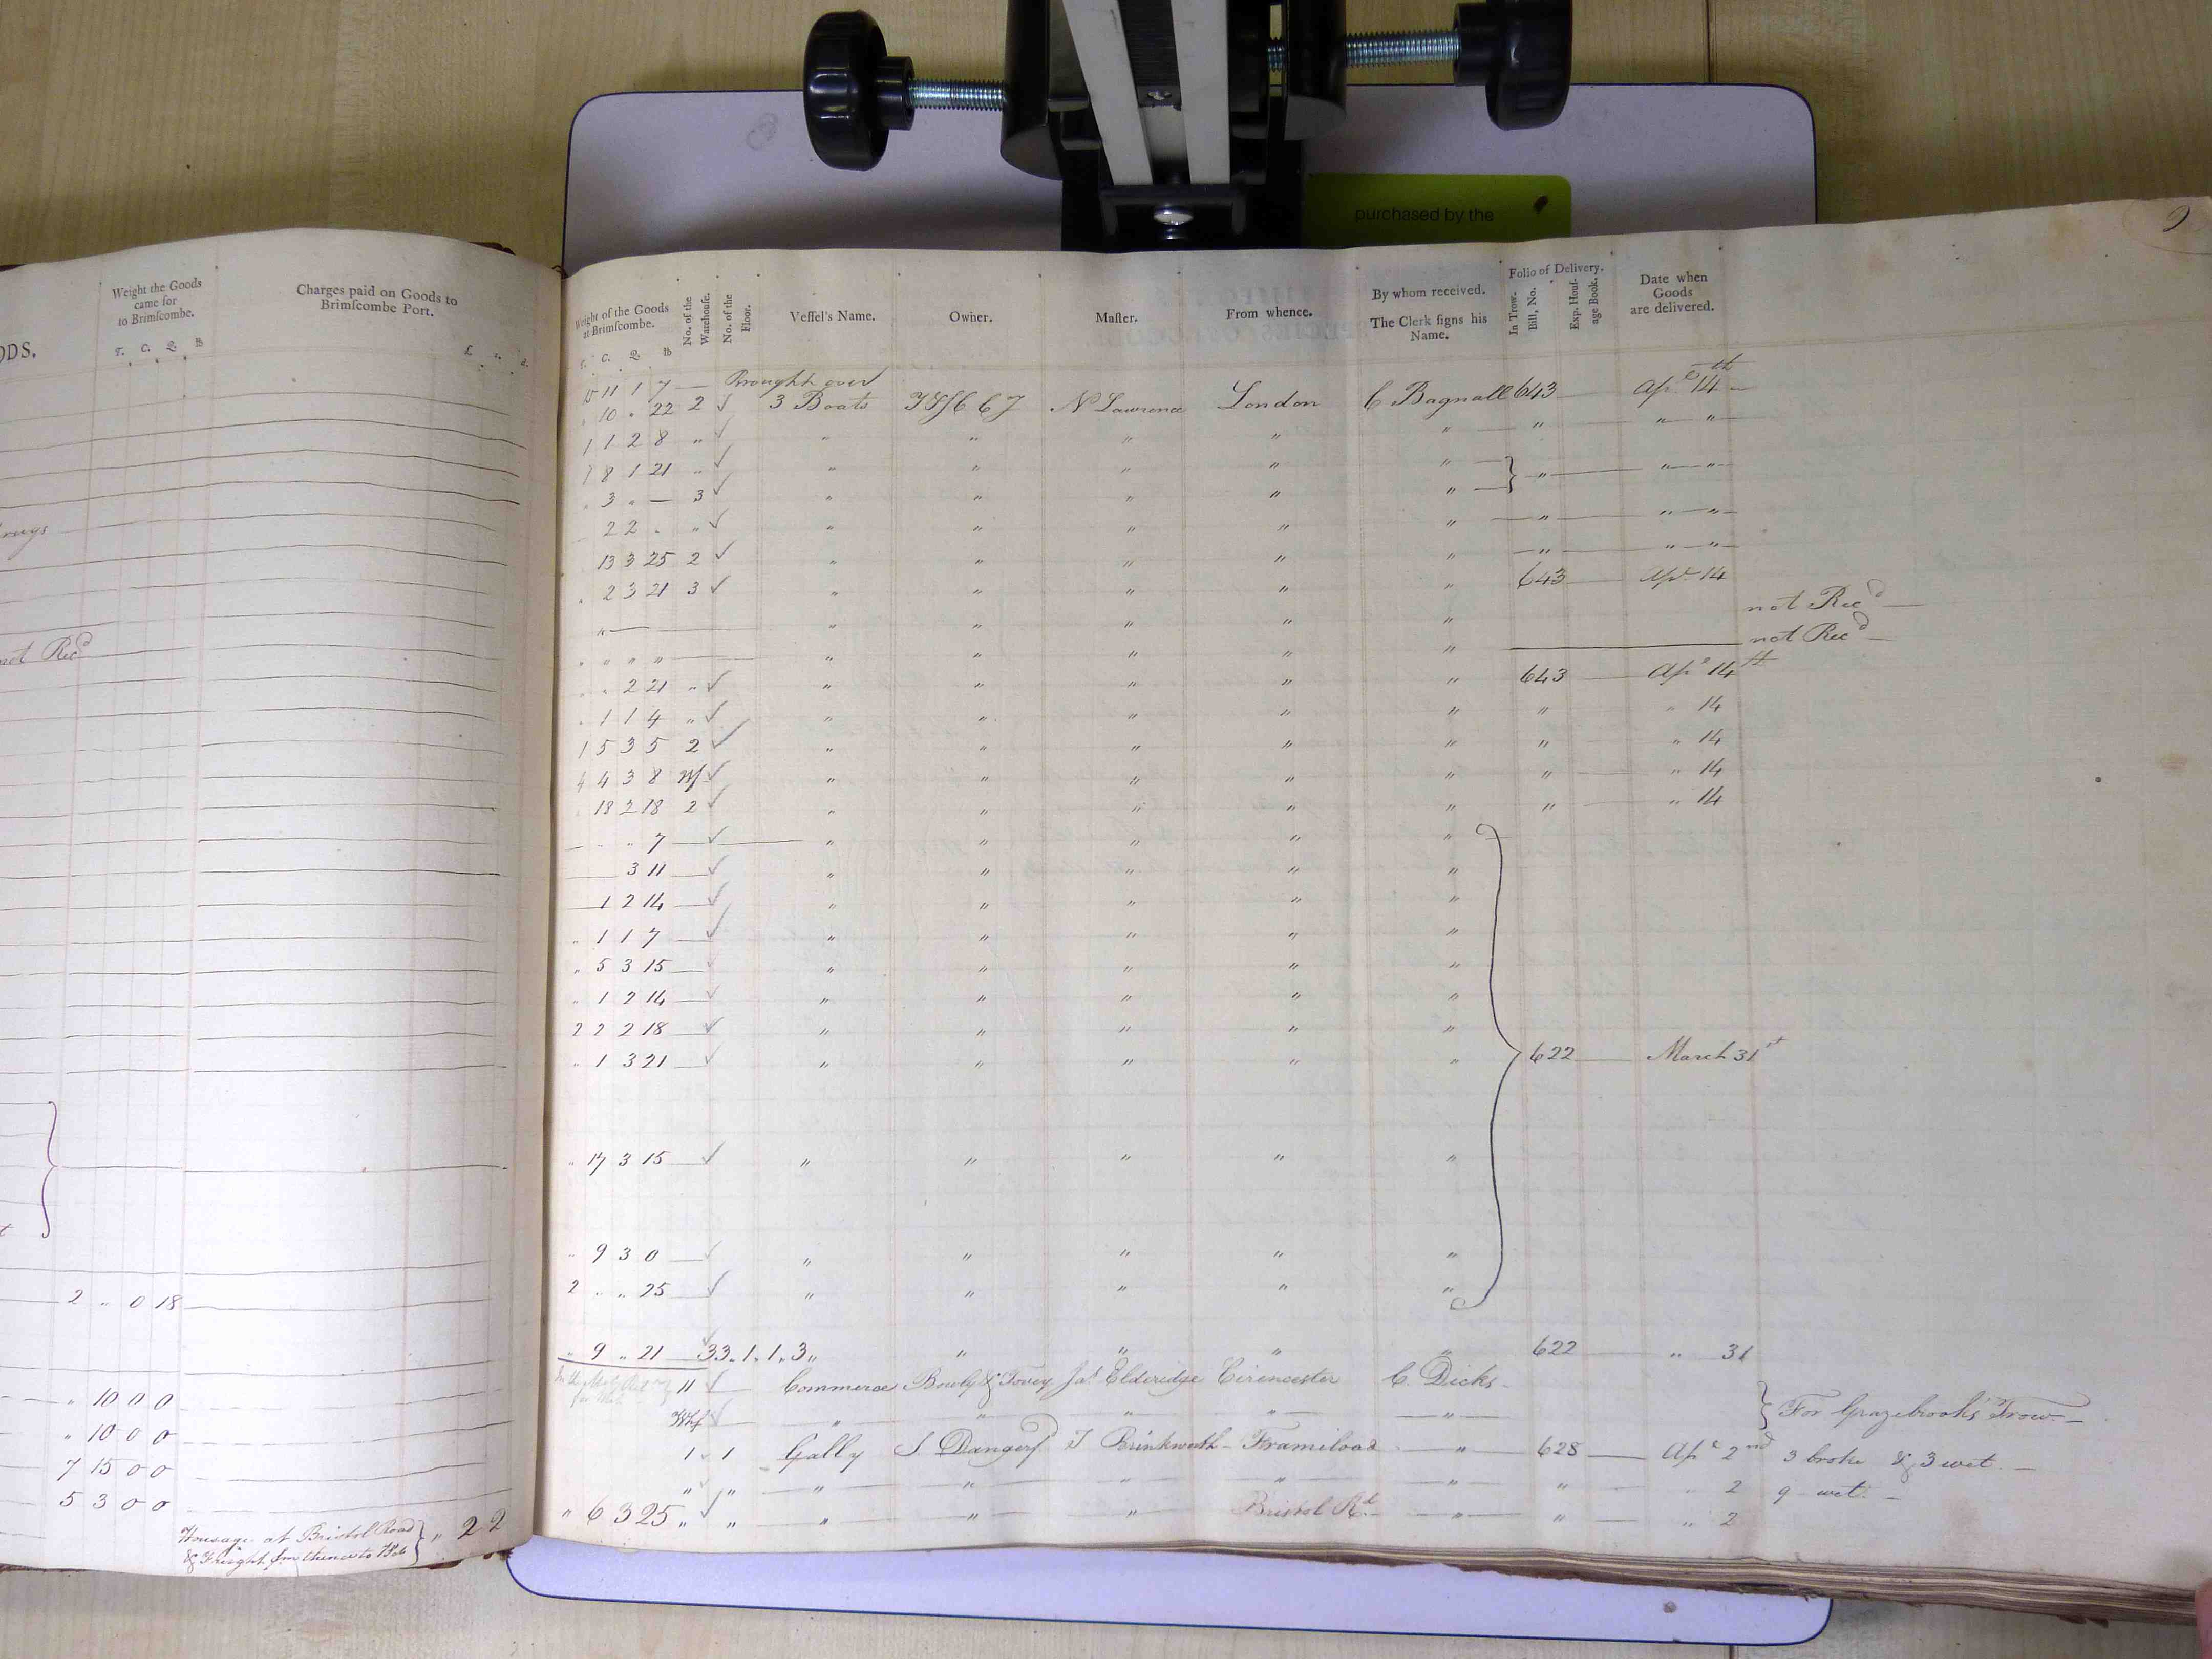 purchased by the
9
ODS.
Weight the Goods
came for
to Brimſcombe.
T. C. Q. lb
Charges paid on Goods to
Brimſcombe Port.
£. s. d.
not Recd
2 " 0 18
" 10 0 0
" 10 0 0
7 15 0 0
5 3 0 0
Housage at Bristol Road
& Freight fm thence to } " 2 2
Weight of the Goods
at Brimſcombe.
T. C. Q. lb
No. of the
Warehouſe.
No. of the
Floor.
Veſſel's Name.
Owner.
Maſter.
From whence.
By whom received.
The Clerk ſigns his
Name.
Folio of Delivery.
In Trow.
Bill, No.
Exp. Houſ-
age Book.
Date when
Goods
are delivered.
11 1 7 — Brought over
" 10 " 22 2 ✓ 3 Boats N Lawrence London C Bagnall 643 — Apr 14th
1 1 2 8 " ✓ " " " " " " " "
1 8 1 21 " ✓ " " " " " } " " "
" 3 " — 3 ✓ " " " " "
2 2 " " ✓ " " " " " " " "
" 13 3 25 2 ✓ " " " " " " " "
" 2 3 21 3 ✓ " " " " " 643 — Apl 14
" — " " " " " not Recd —
" " " " — " " " " " — not Recd —
" " 2 21 " ✓ " " " " " 643 — Apl 14th
" 1 1 4 " ✓ " " " " " " " 14
1 5 3 5 2 ✓ " " " " " " " 14
4 4 3 8 Wf ✓ " " " " " " " 14
" 18 2 18 2 ✓ " " " " " " " 14
— " " 7 — ✓ — " " " " "
— 3 11 — ✓ " " " " "
— 1 2 14 — ✓ " " " " "
" 1 1 7 — ✓ " " " " "
" 5 3 15 — ✓ " " " " "
" 1 2 14 — ✓ " " " " "
2 2 2 18 — ✓ " " " " "
" 1 3 21 — ✓ " " " " " } 622 — March 31st
" 17 3 15 — ✓ " " " " "
" 9 3 0 — ✓ " " " " "
2 " " 25 — ✓ " " " " "
" 9 " 21 — 33. 1. 1. 3 " " " " " 622 — " 31
11 ✓ — Commerce Bowly & Tovey Jas Elderidge Cirencester C. Dicks
Whf ✓ — " " " " " } For Grazebrooks' Trow —
1 ✓ 1 Gally J. Dangerf T Brinkworth — Framiload " 628 — Apl 2nd 3 broke & 3 wet —
" ✓ " " " " " " " " 2 9 wet —
" 6 3 25 " ✓ " " " " Bristol Rd — " " " 2